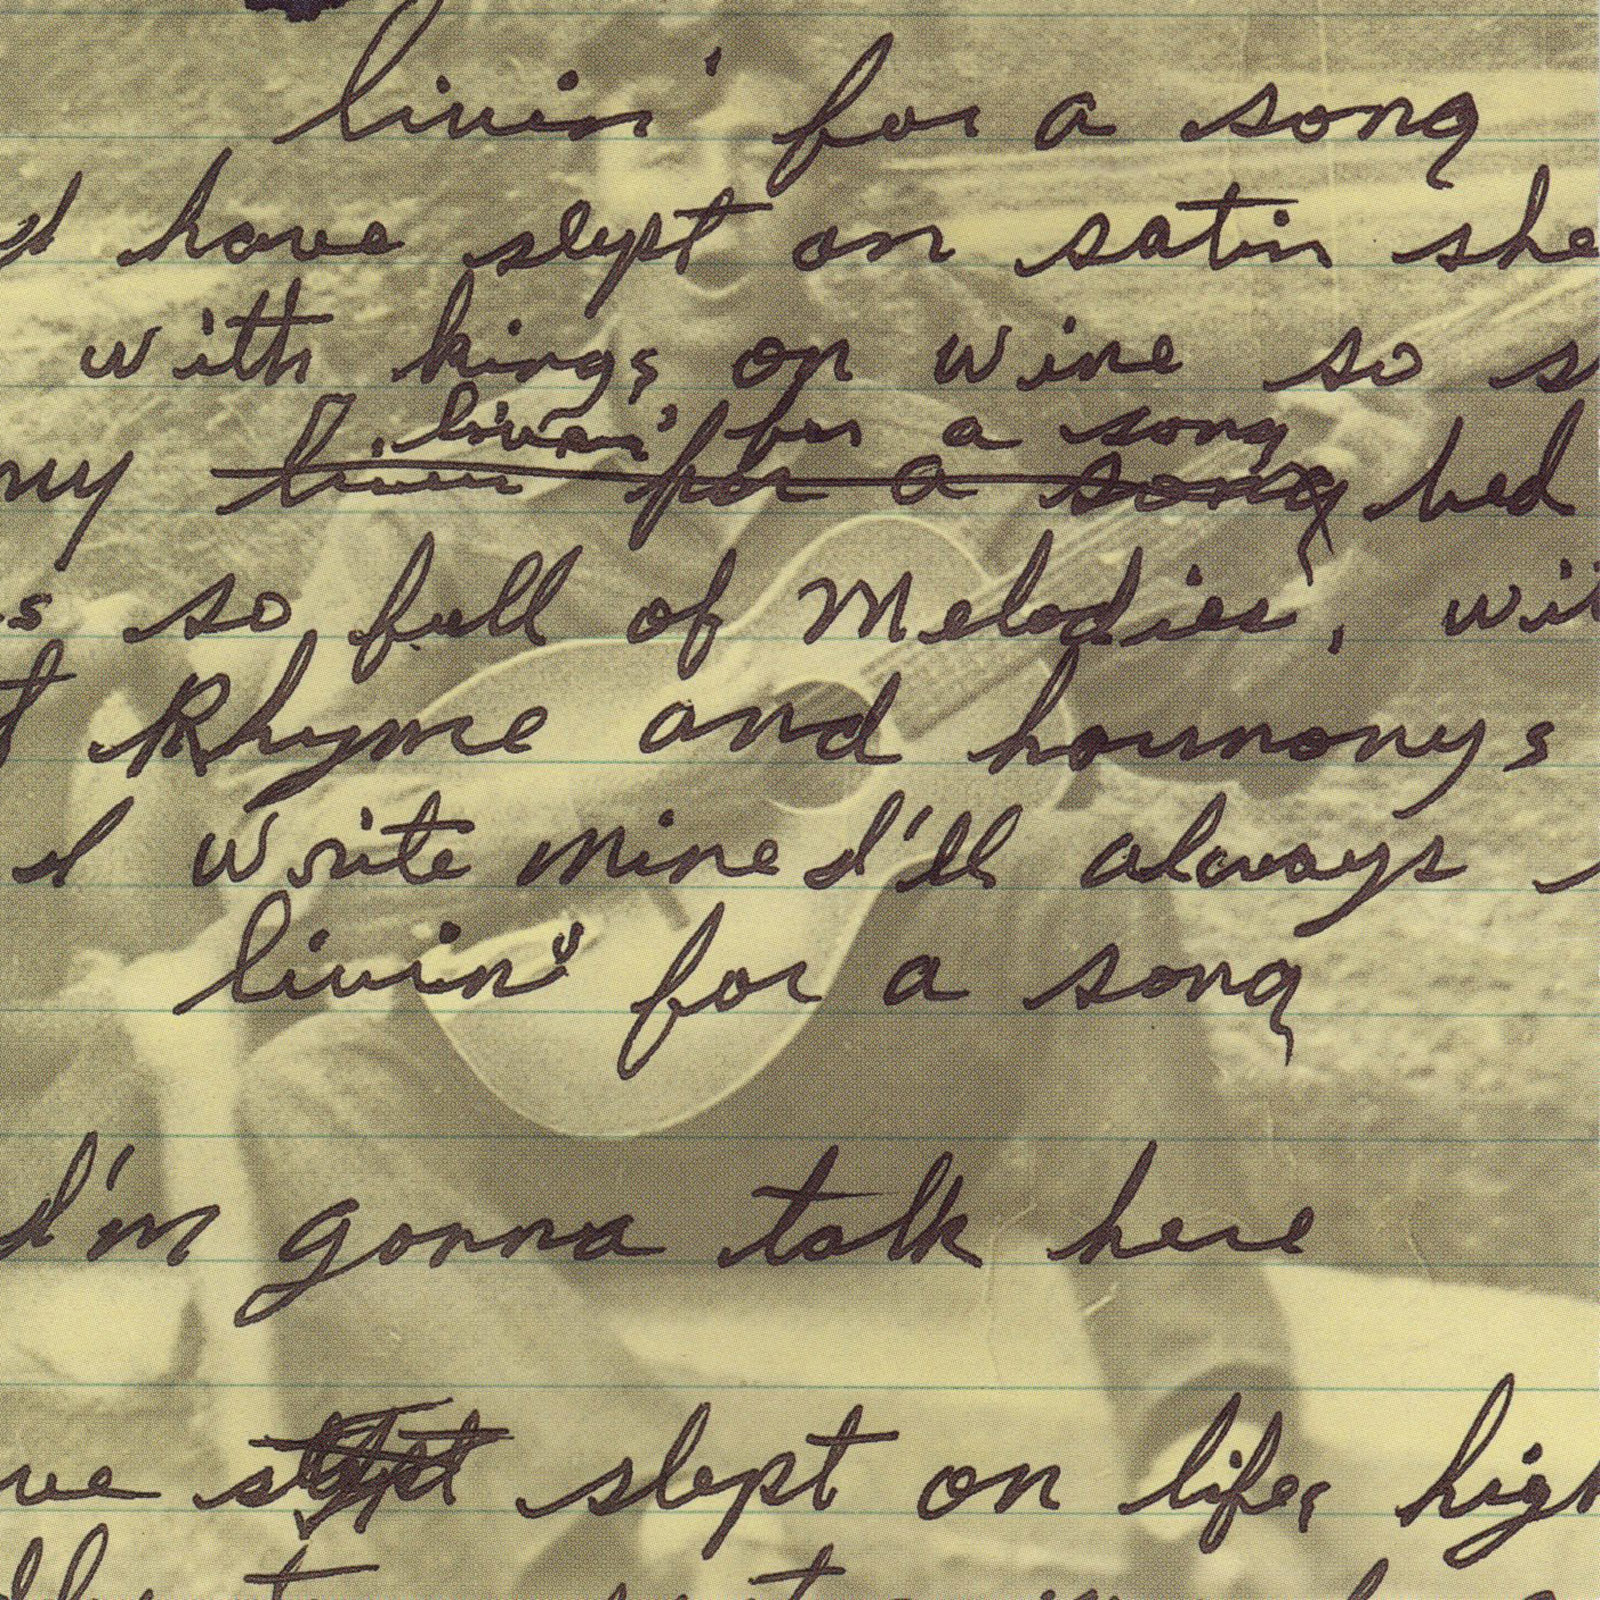 livin' for a song
I have slept on satin she
with kings on wine so s
livin' for a song
my livin for a song bed
s so full of Melodies, wit
t Rhyme and hormonys
I write mine I'll always
livin' for a song
I'm gonna talk here
ve slept slept on lifes high